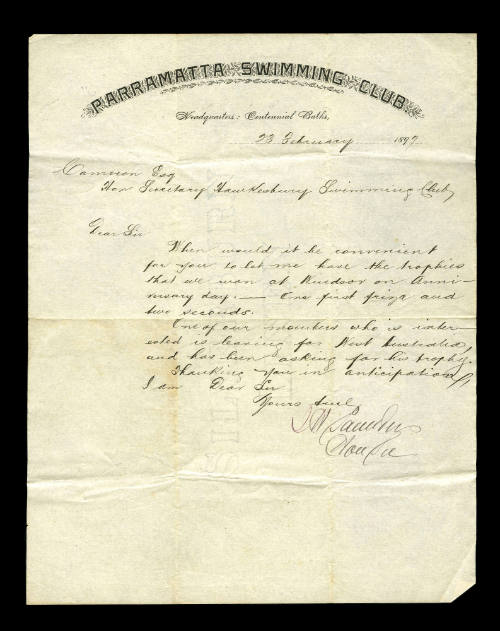 PARRAMATTA SWIMMING CLUB
Headquarters: Centennial Baths,
23 February 1897
Cameron Esq
Hon Secretary Hawkesbury Swimming Club,
Dear Sir
When would it be convenient
for you to let me have the trophies
that we won at Windsor on Anni-
versary day. — One first prize and
two seconds.
One of our members who is inter-
ested is leaving for West Australia,
and has been asking for his trophy.
Thanking you in anticipation,
I am Dear Sir
Yours truly
Hon Sec